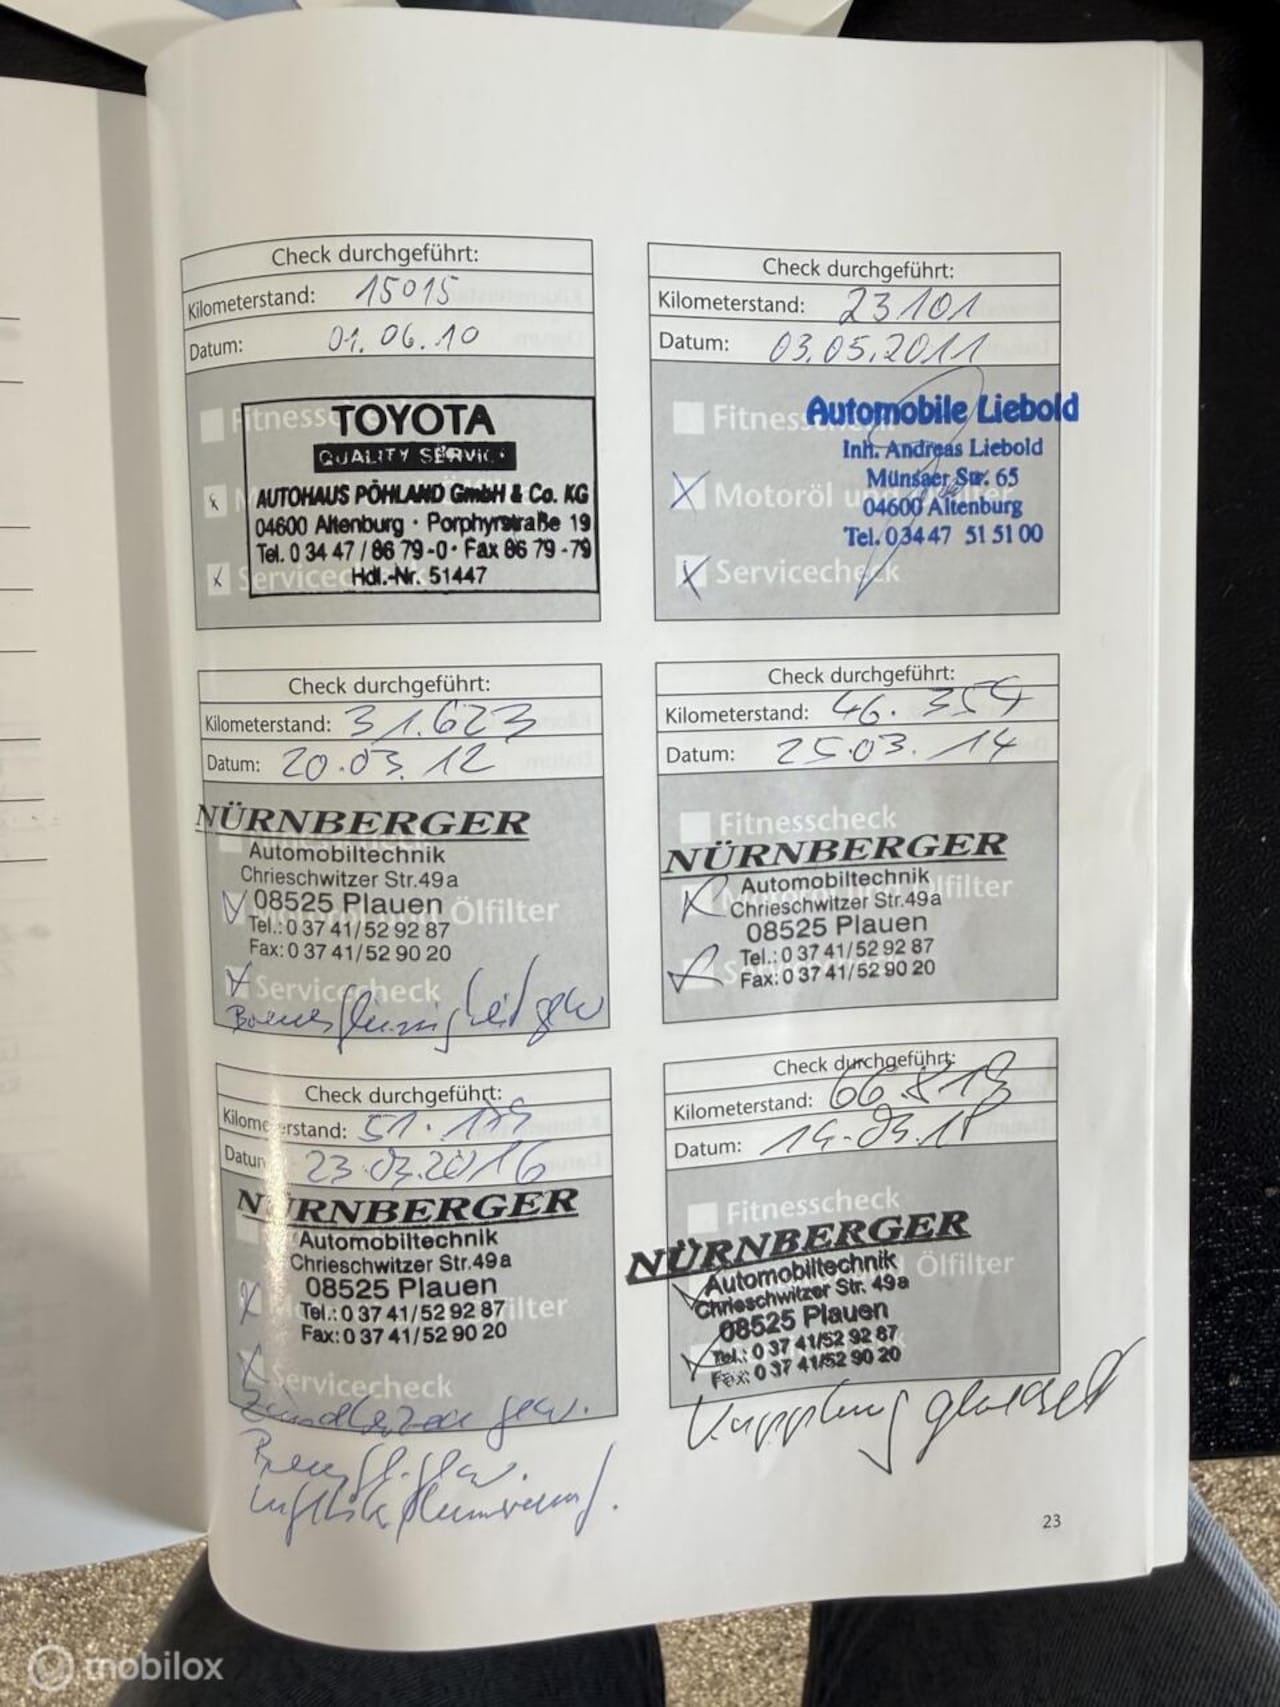 Check durchgeführt:
Kilometerstand: 15015
Datum: 01.06.10
Fitnesscheck
TOYOTA
QUALITY SERVICE
AUTOHAUS PÖHLAND GmbH & Co. KG
04600 Altenburg · Porphyrstraße 19
Tel. 0 34 47 / 86 79 -0 · Fax 86 79 -79
Hdl.-Nr. 51447
Servicecheck
Check durchgeführt:
Kilometerstand: 23101
Datum: 03.05.2011
Fitnesscheck
Automobile Liebold
Inh. Andreas Liebold
Münsaer Str. 65
Motoröl und Ölfilter
04600 Altenburg
Tel. 03447 51 51 00
Servicecheck
Check durchgeführt:
Kilometerstand: 31.623
Datum: 20.03.12
NÜRNBERGER
Automobiltechnik
Chrieschwitzer Str.49a
08525 Plauen
Ölfilter
Tel.: 0 37 41/52 92 87
Fax: 0 37 41/52 90 20
Servicecheck
Bremsflüssigkeit gew
Check durchgeführt:
Kilometerstand: 46.354
Datum: 25.03.14
Fitnesscheck
NÜRNBERGER
Automobiltechnik
Chrieschwitzer Str.49a
08525 Plauen
Tel.: 0 37 41/52 92 87
Fax: 0 37 41/52 90 20
Check durchgeführt:
Kilometerstand: 51.
Datum: 23.03.2016
NÜRNBERGER
Automobiltechnik
Chrieschwitzer Str.49a
08525 Plauen
Tel.: 0 37 41/52 92 87
Fax: 0 37 41/52 90 20
Servicecheck
Zündkerzen gew.
Bremsfl. gew.
Check durchgeführt:
Kilometerstand: 66.813
Datum: 14.03.18
Fitnesscheck
NÜRNBERGER
Ölfilter
Automobiltechnik
Chrieschwitzer Str. 49a
08525 Plauen
Tel.: 0 37 41/52 92 87
Fax: 0 37 41/52 90 20
Kupplung
23
mobilox